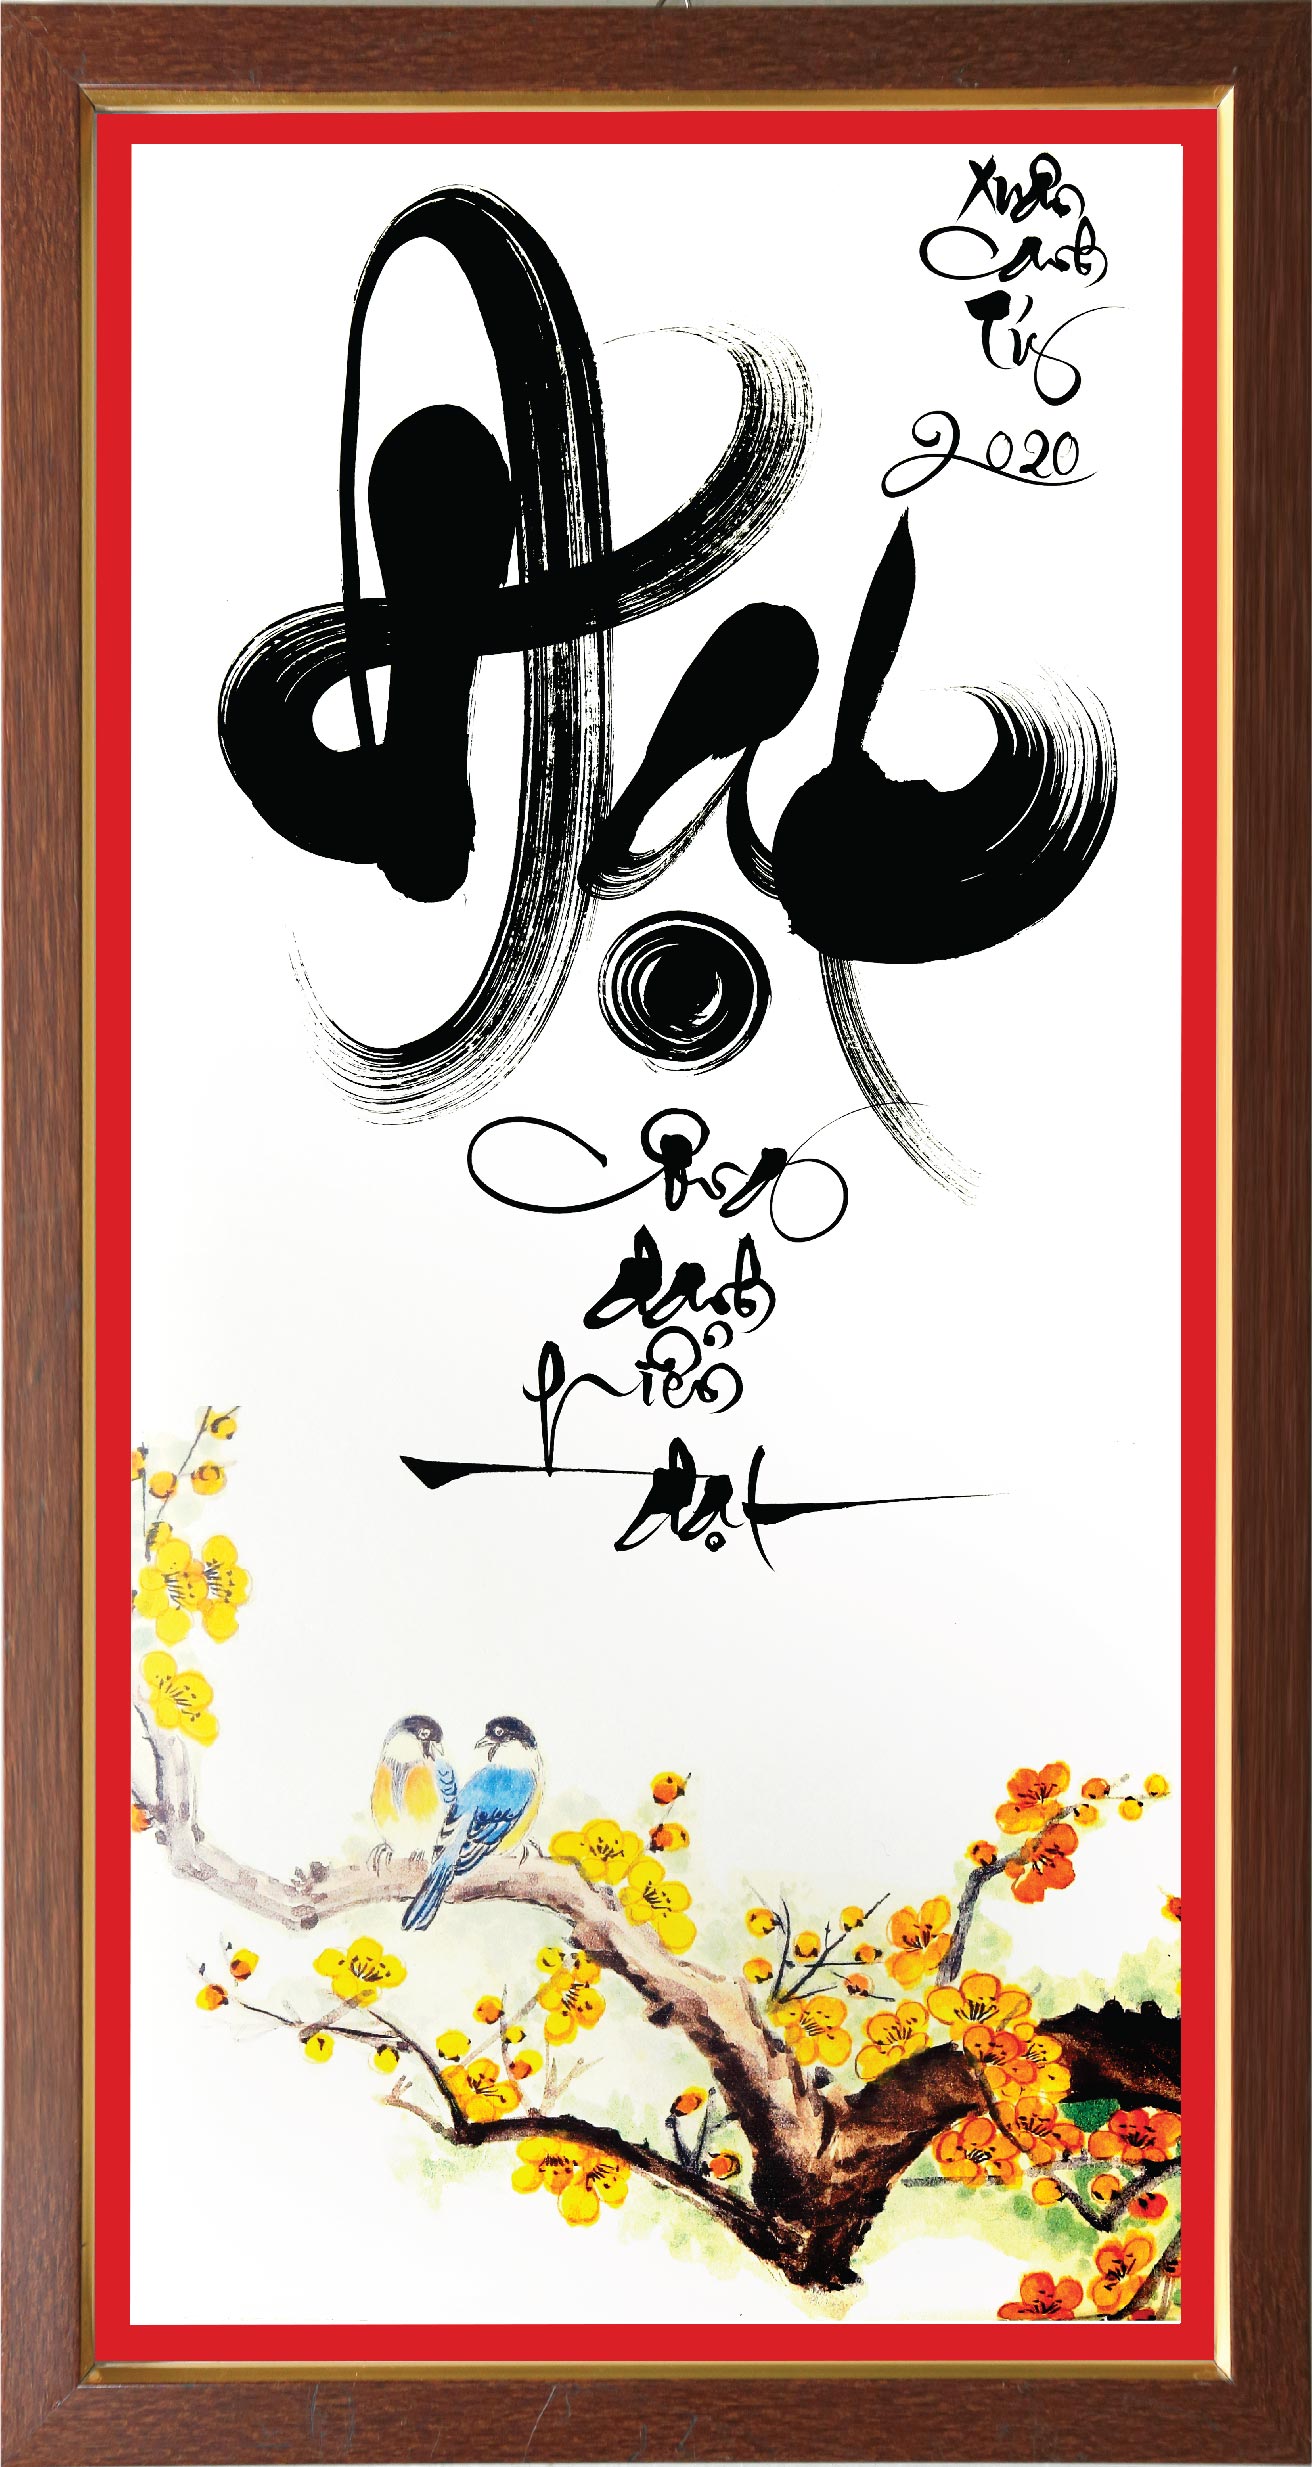 Xuân
Canh
Tý
2020
Đạt
Công
danh
hiển
đạt